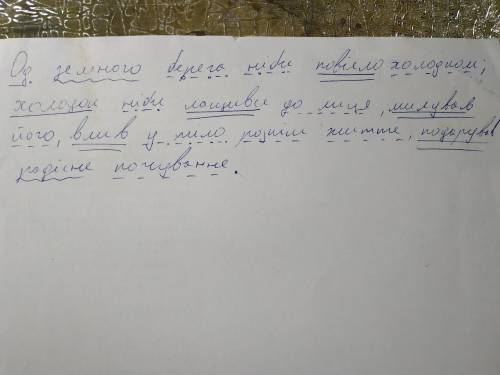 Од земного берега ніби повіяло холодком;
холодок ніби лащивсь до лиця, милував
його, вливав у тіло розкіш життє, подарував
радісне почування.